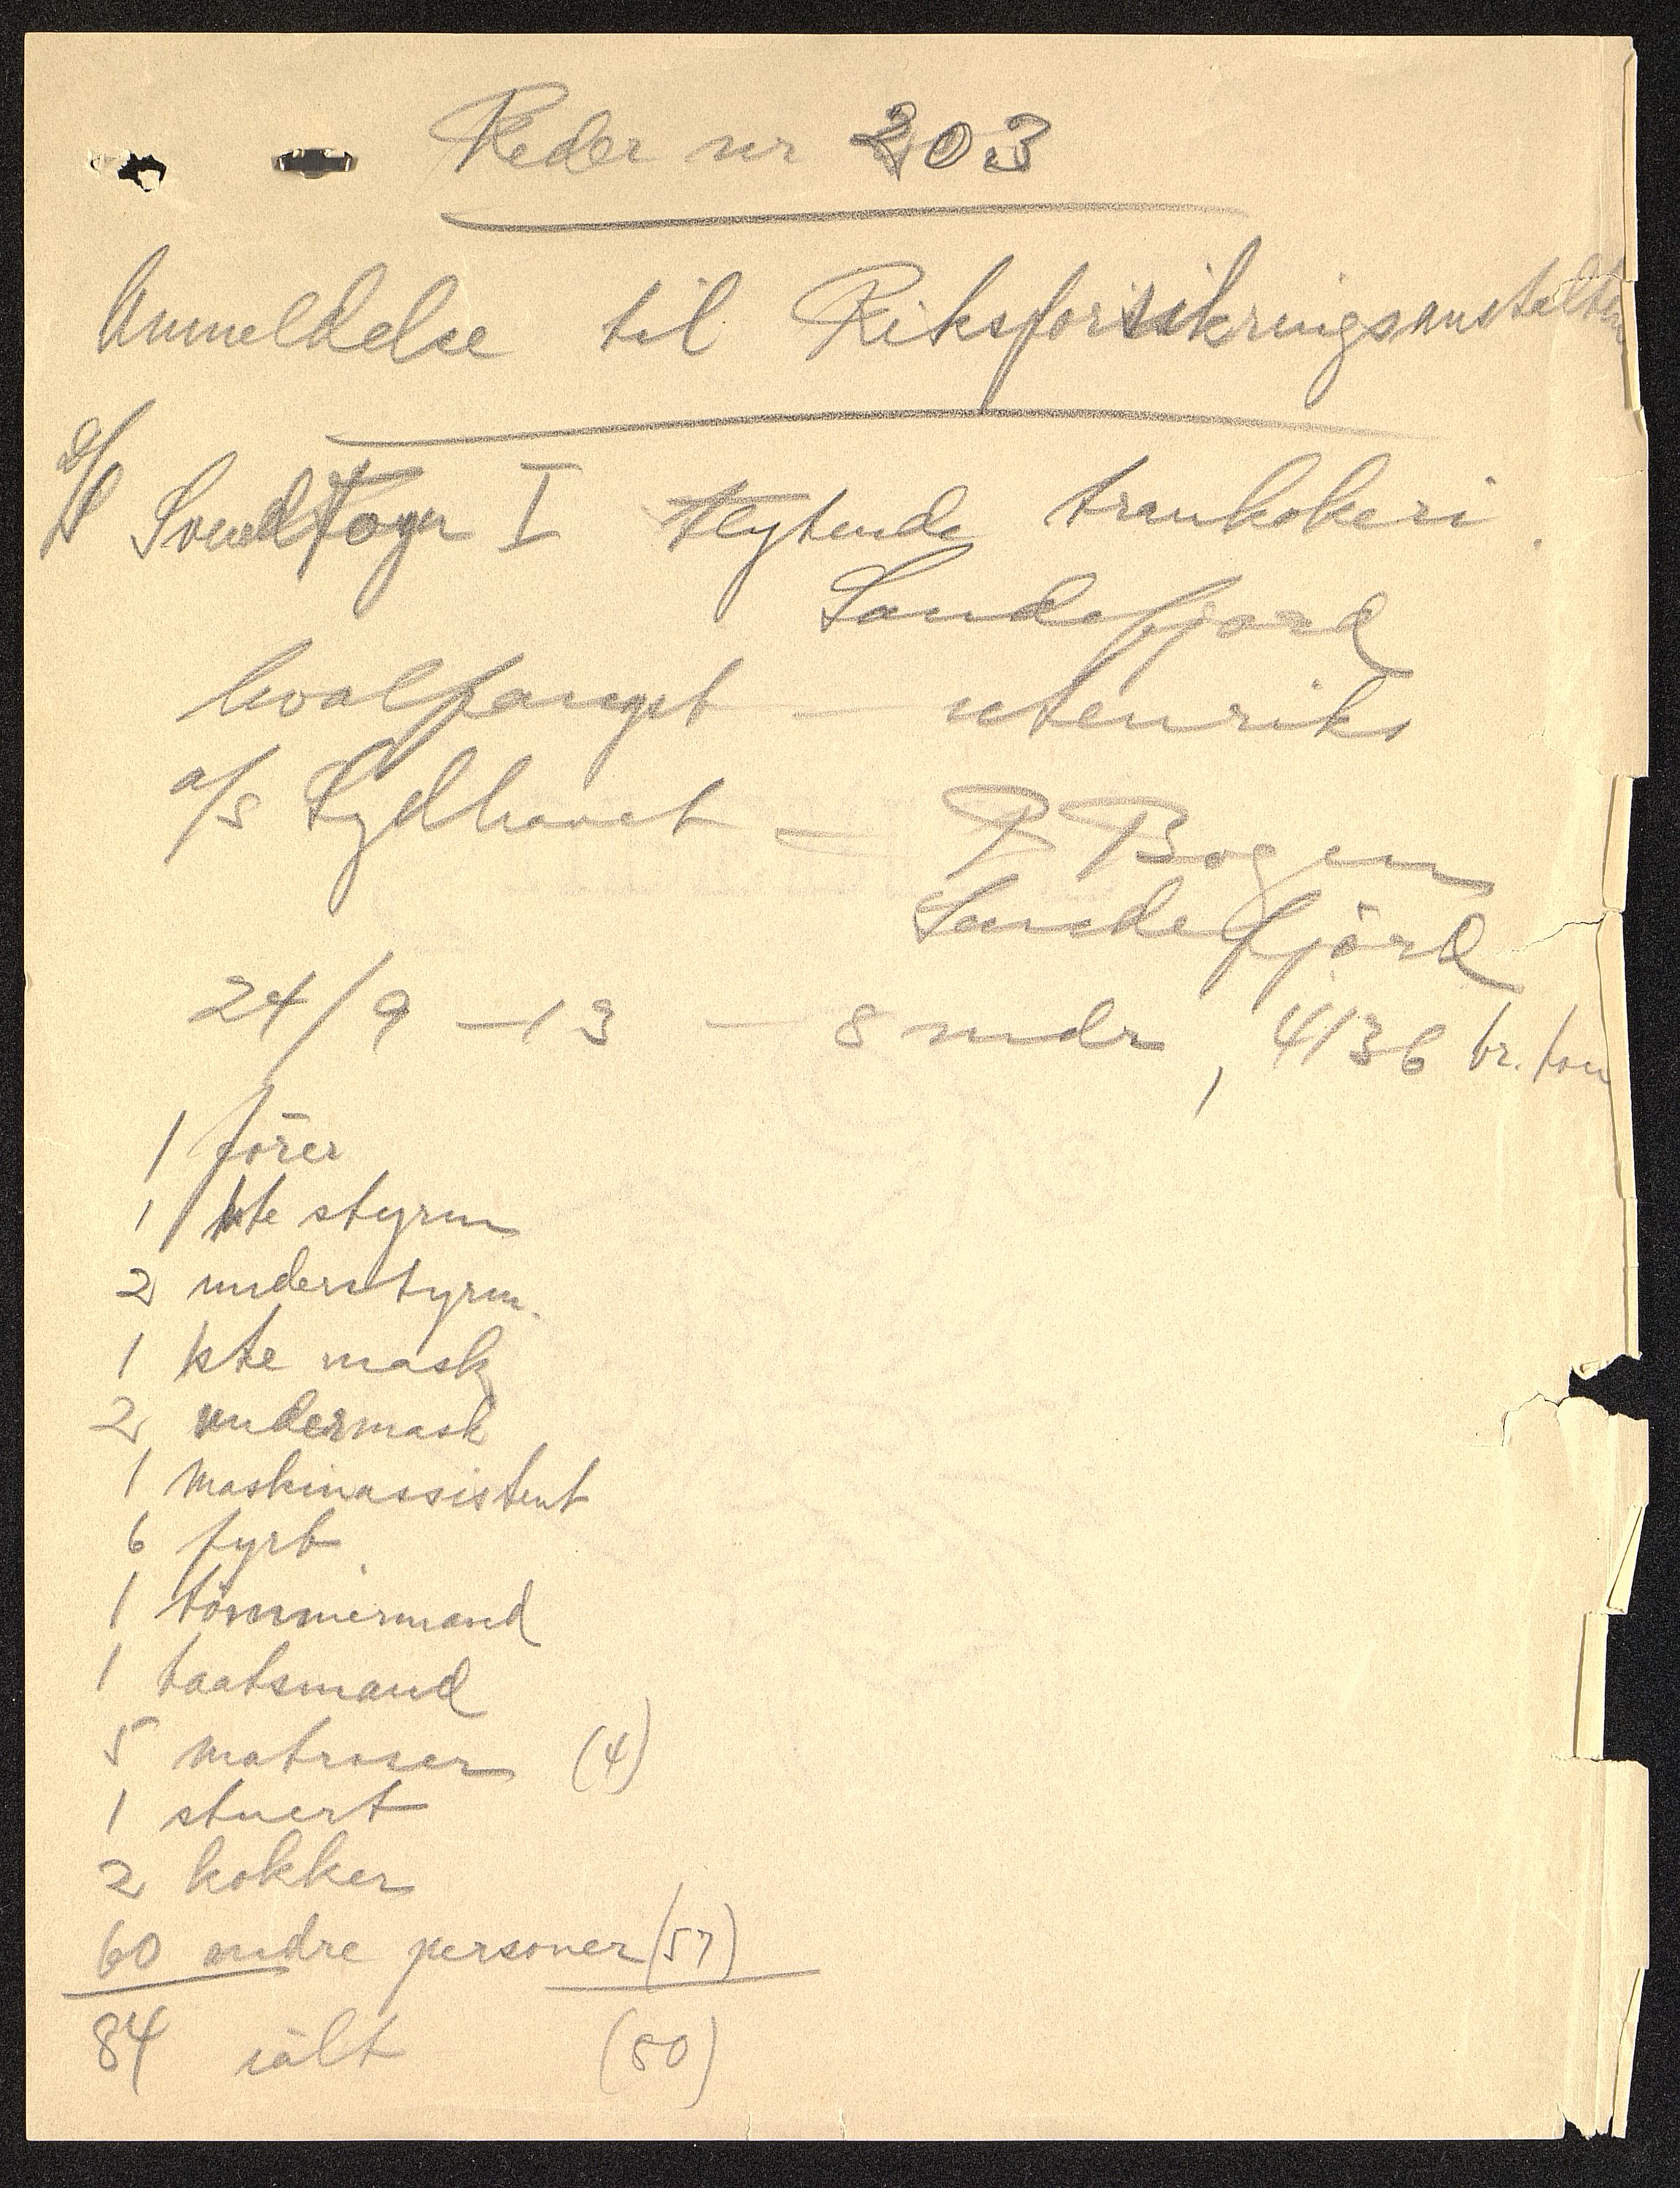 Reder nr 203
Anmeldelse til Riksforsikringsanstalten
D/S Svend Foyn I flytende trankokeri.
Sandefjord
hvalfangst - utenriks
a/s Sydhavet - P Bogen
Sandefjörd
24/9 - 13 - 8 mdr, 4136 br. ton
1 förer
1 1ste styrm
2 understyrm.
1 1ste mask
2 undermask
1 Maskinassistent
6 fyrb.
1 tömmermand
1 baatsmand
5 matroser (4)
1 stuert
2 kokker
60 andre personer (57)
84 ialt (80)